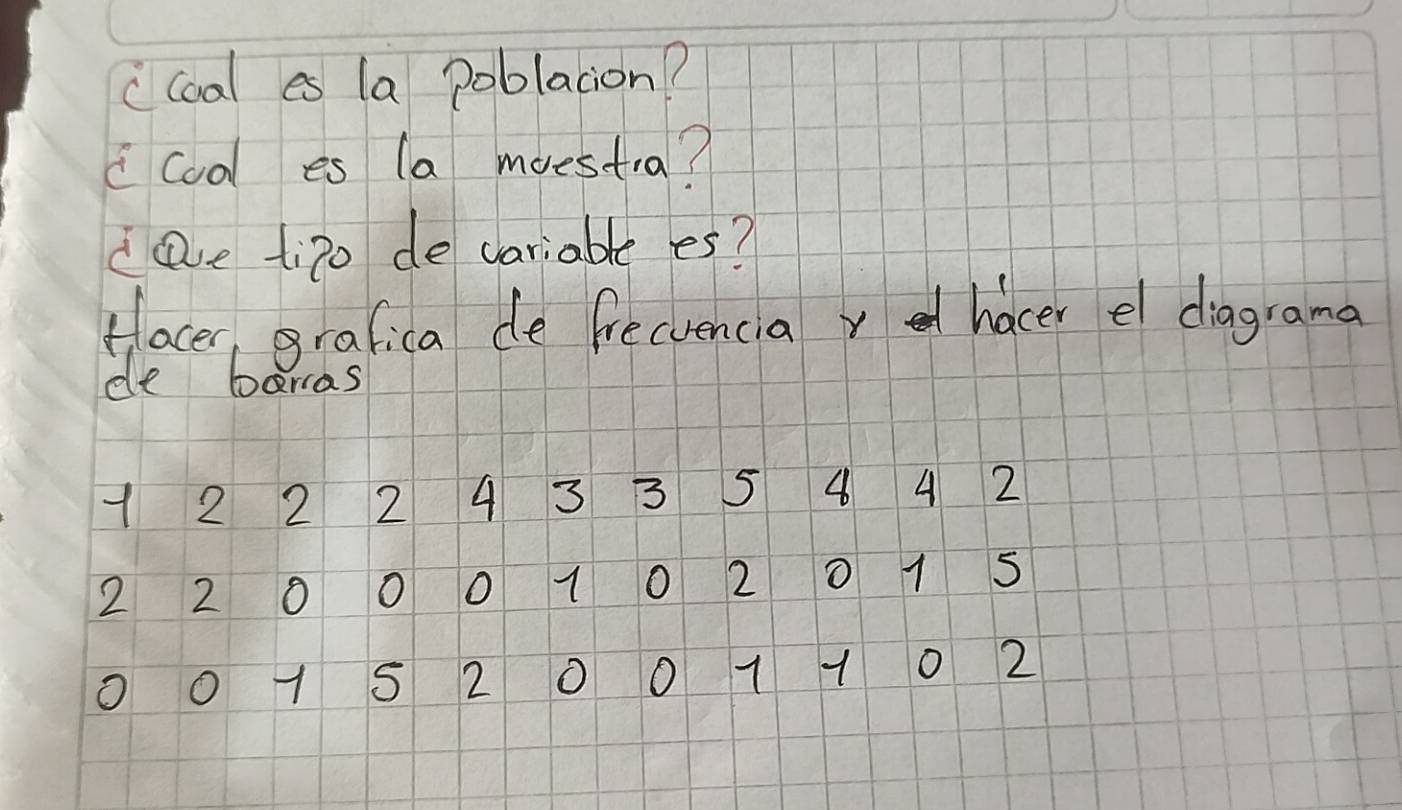 ¿Cual es la poblacion?
¿Cual es la muestra?
¿Que tipo de variable es?
Hacer grafica de frecuencia y hacer el diagrama
de barras
1 2 2 2 4 3 3 5 4 4 2
2 2 0 0 0 1 0 2 0 1 5
0 0 1 5 2 0 0 1 1 0 2